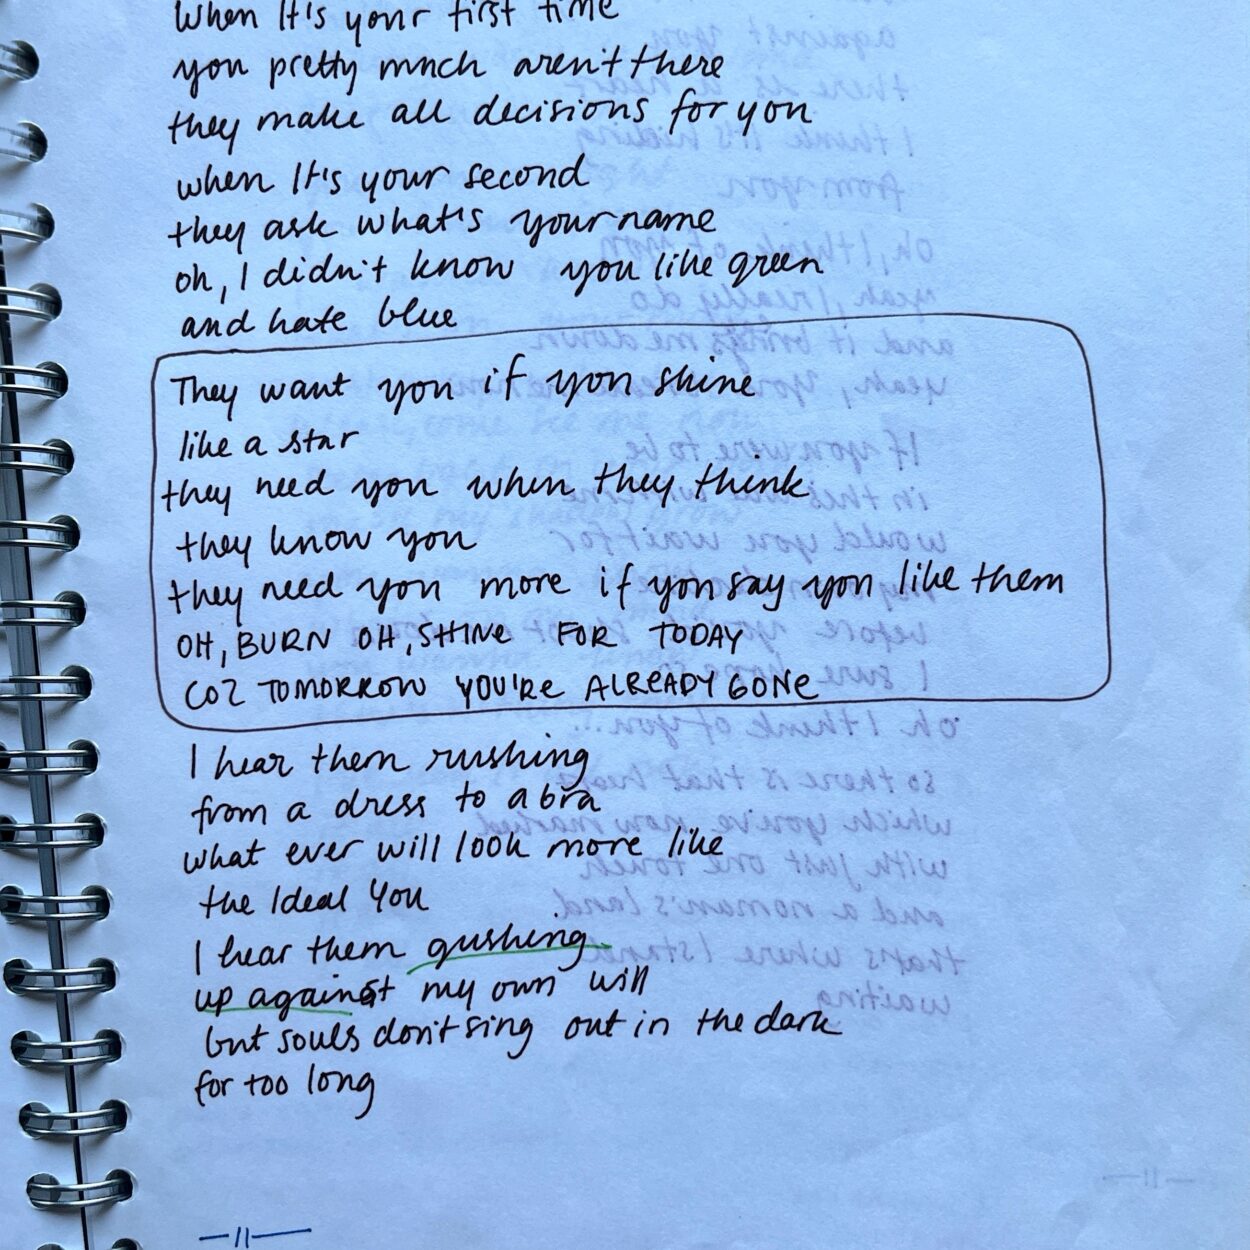 When It's your first time
you pretty much aren't there
they make all decisions for you
when It's your second
they ask what's your name
oh, I didn't know you like green
and hate blue
They want you if you shine
like a star
they need you when they think
they know you
they need you more if you say you like them
OH, BURN OH, SHINE FOR TODAY
COZ TOMORROW YOU'RE ALREADY GONE
I hear them rushing
from a dress to a bra
what ever will look more like
the Ideal You
I hear them gushing
up against my own will
but souls don't sing out in the dark
for too long
—11—